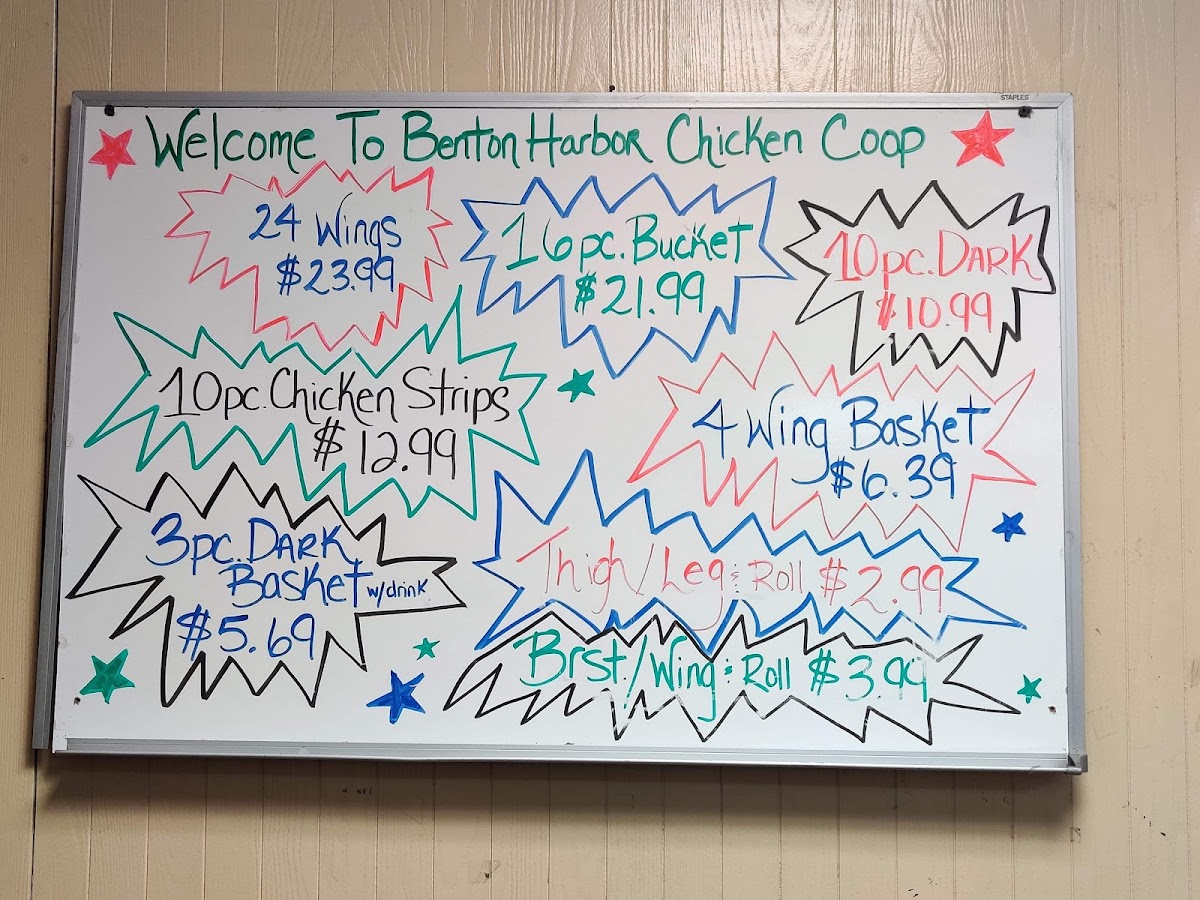 STAPLES
Welcome To Benton Harbor Chicken Coop
24 Wings
$23.99
16pc. Bucket
$21.99
10pc. DARK
$10.99
10pc. Chicken Strips
$12.99
4 Wing Basket
$6.39
3pc. DARK
Basket w/drink
$5.69
Thigh/Leg & Roll $2.99
Brst./Wing & Roll $3.99